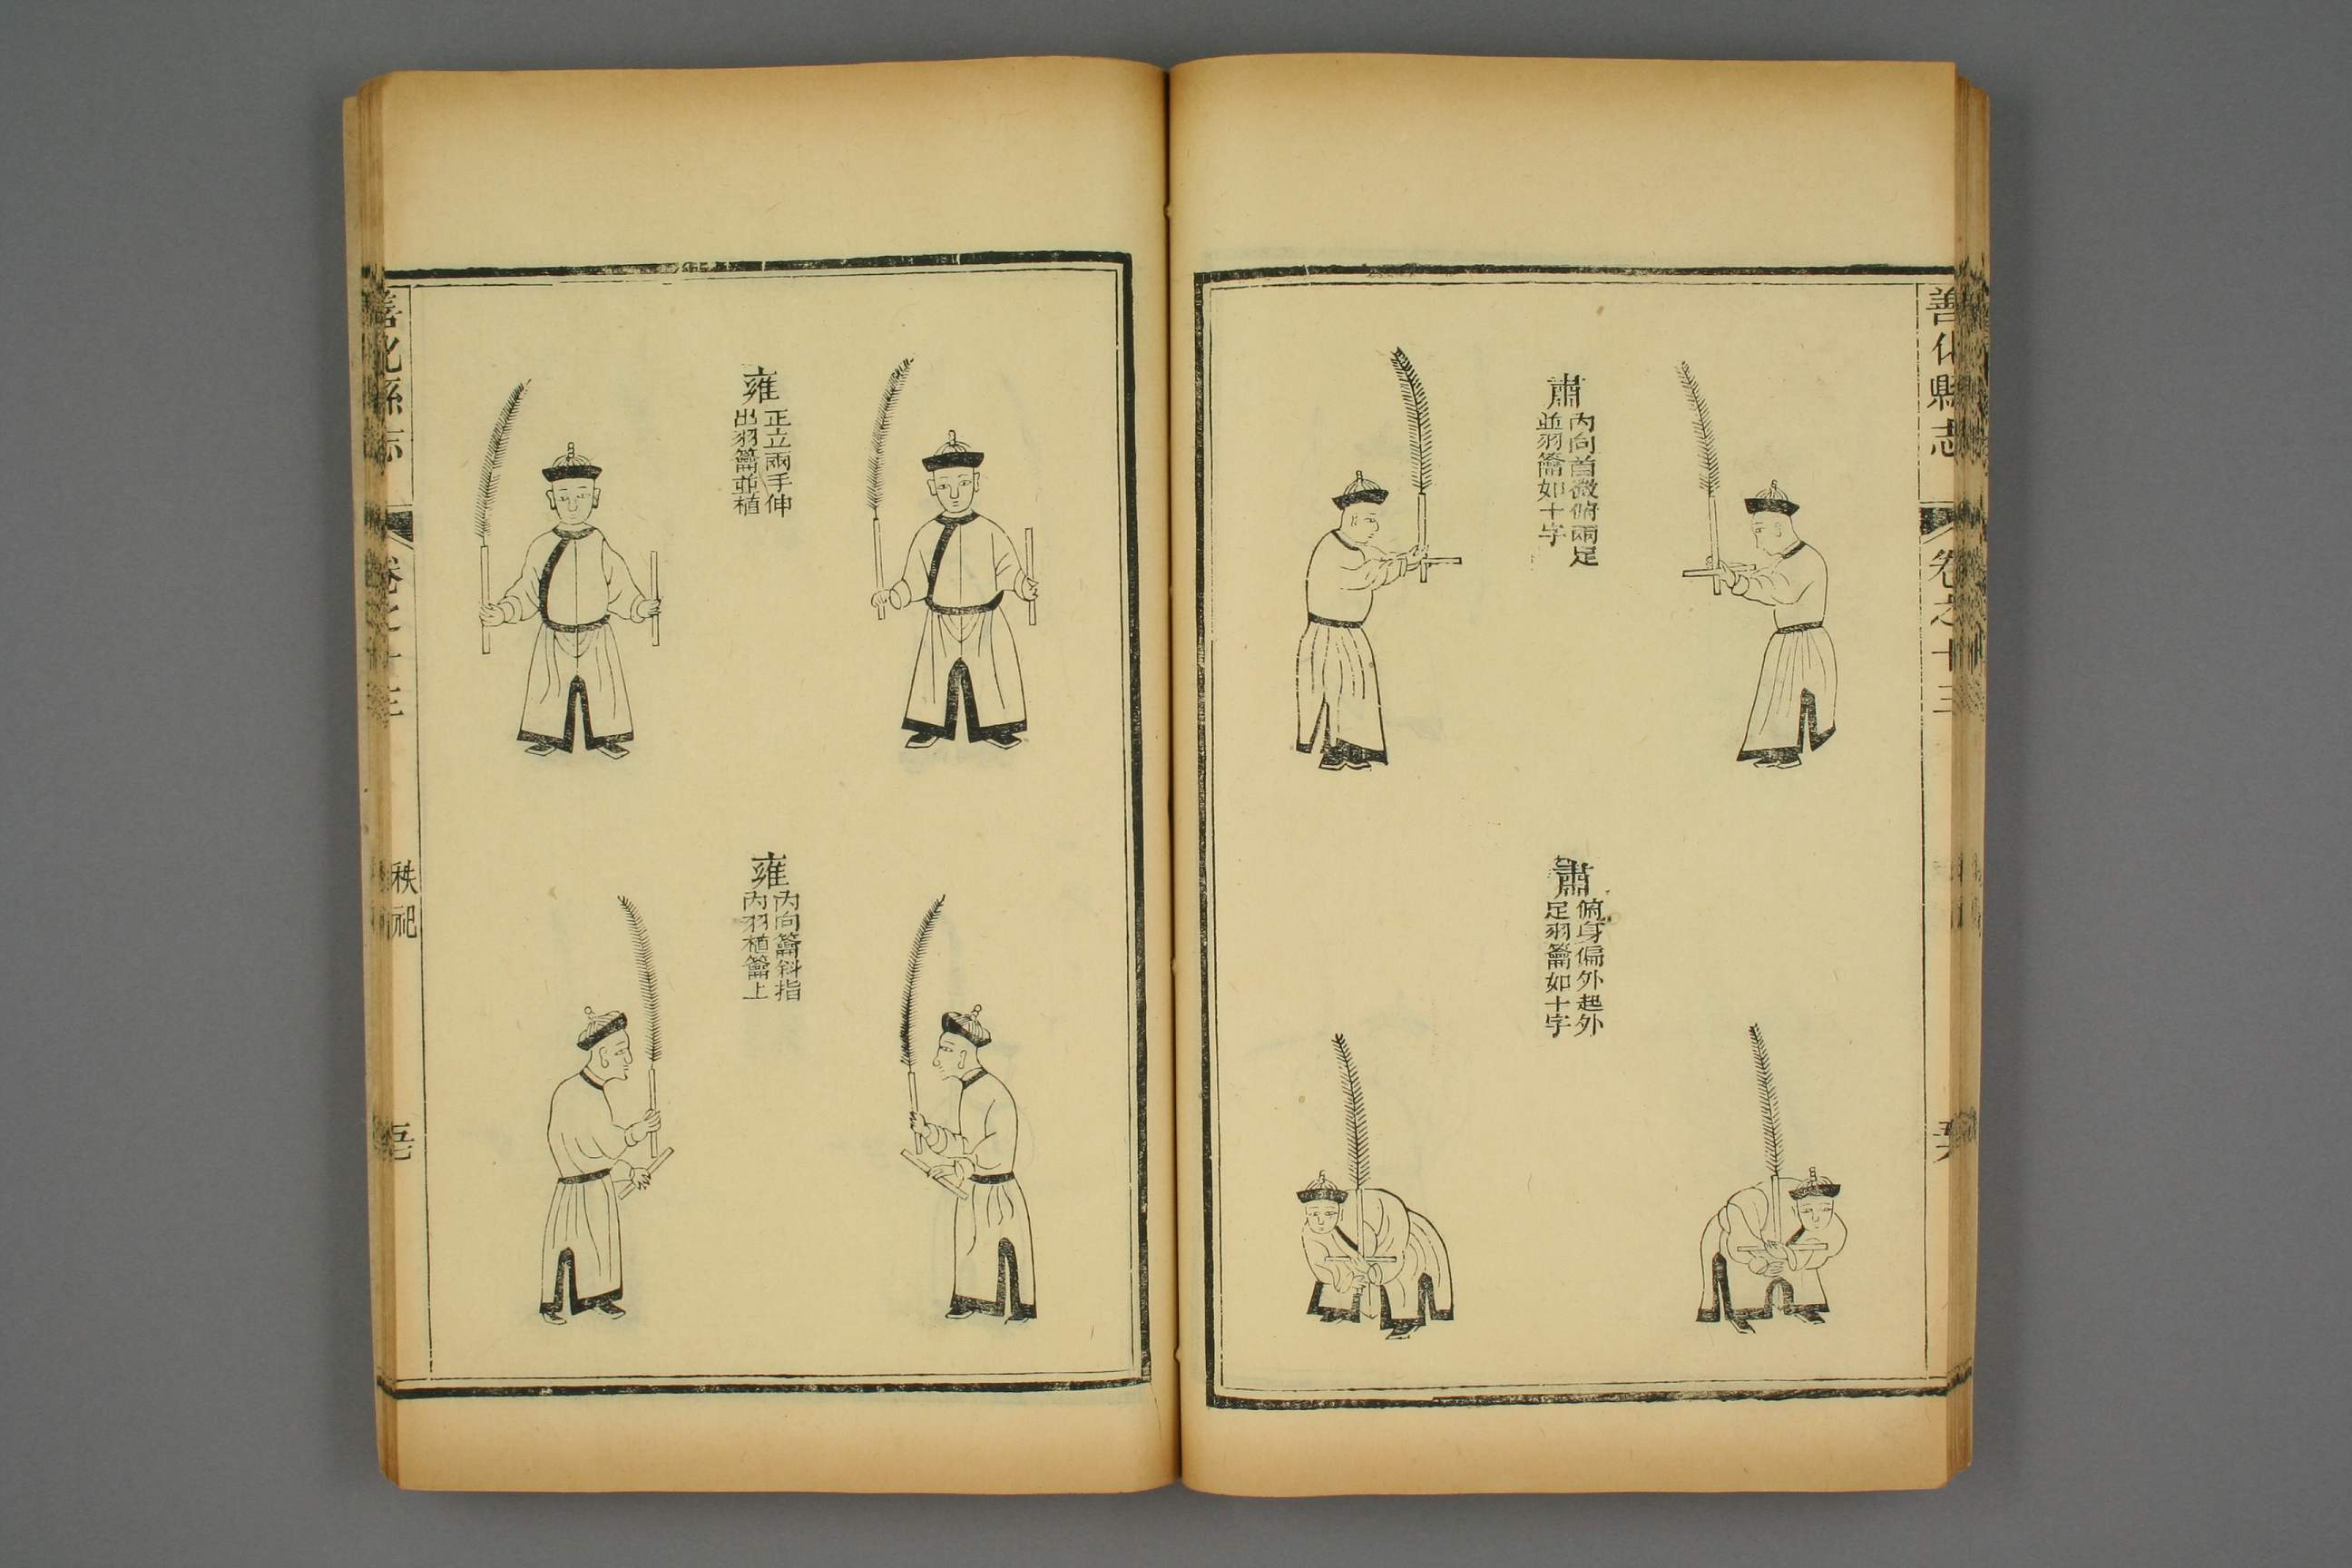 善化縣志
卷之十三
肅
內向首微俯兩足
並羽籥如十字
肅
俯身偏外起外
足羽籥如十字
雍
正立兩手伸
出羽籥並植
雍
內向籥斜指
內羽植籥上
善化縣志
卷之十三
秩祀